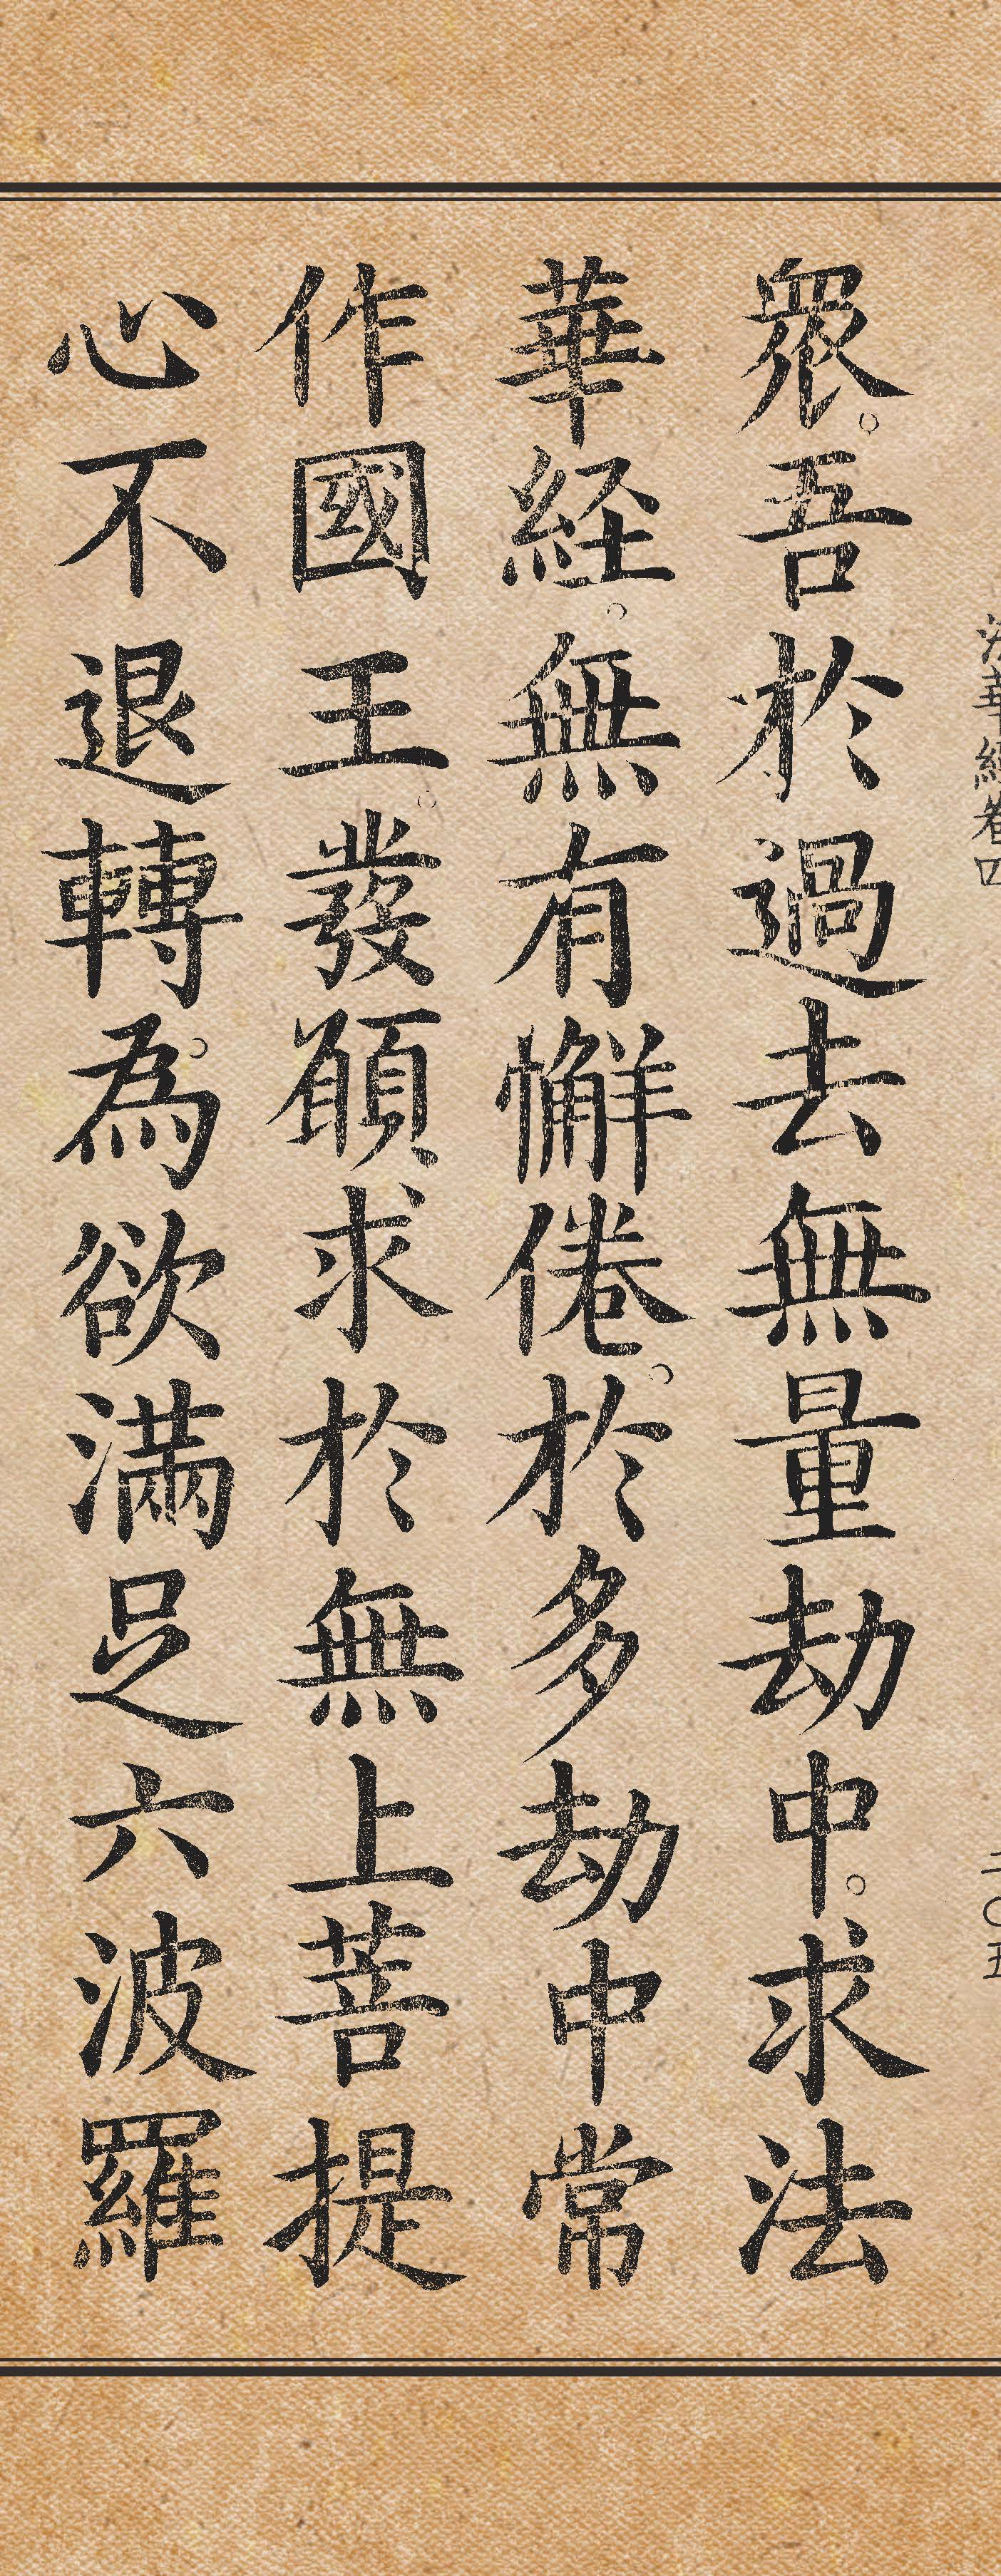 法華經卷四
二〇五
眾。吾於過去無量劫中。求法
華経。無有懈倦。於多劫中常
作國王。發願求於無上菩提
心不退轉。為欲滿足六波羅